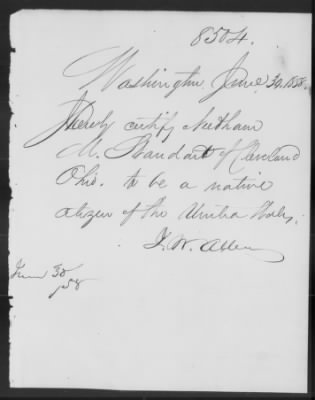 8504.
Washington, June 30, 1858.
I hereby certify Needham
M. Standart of Cleveland
Ohio. to be a native
citizen of the United States.
J. W. Allen
June 30
/58